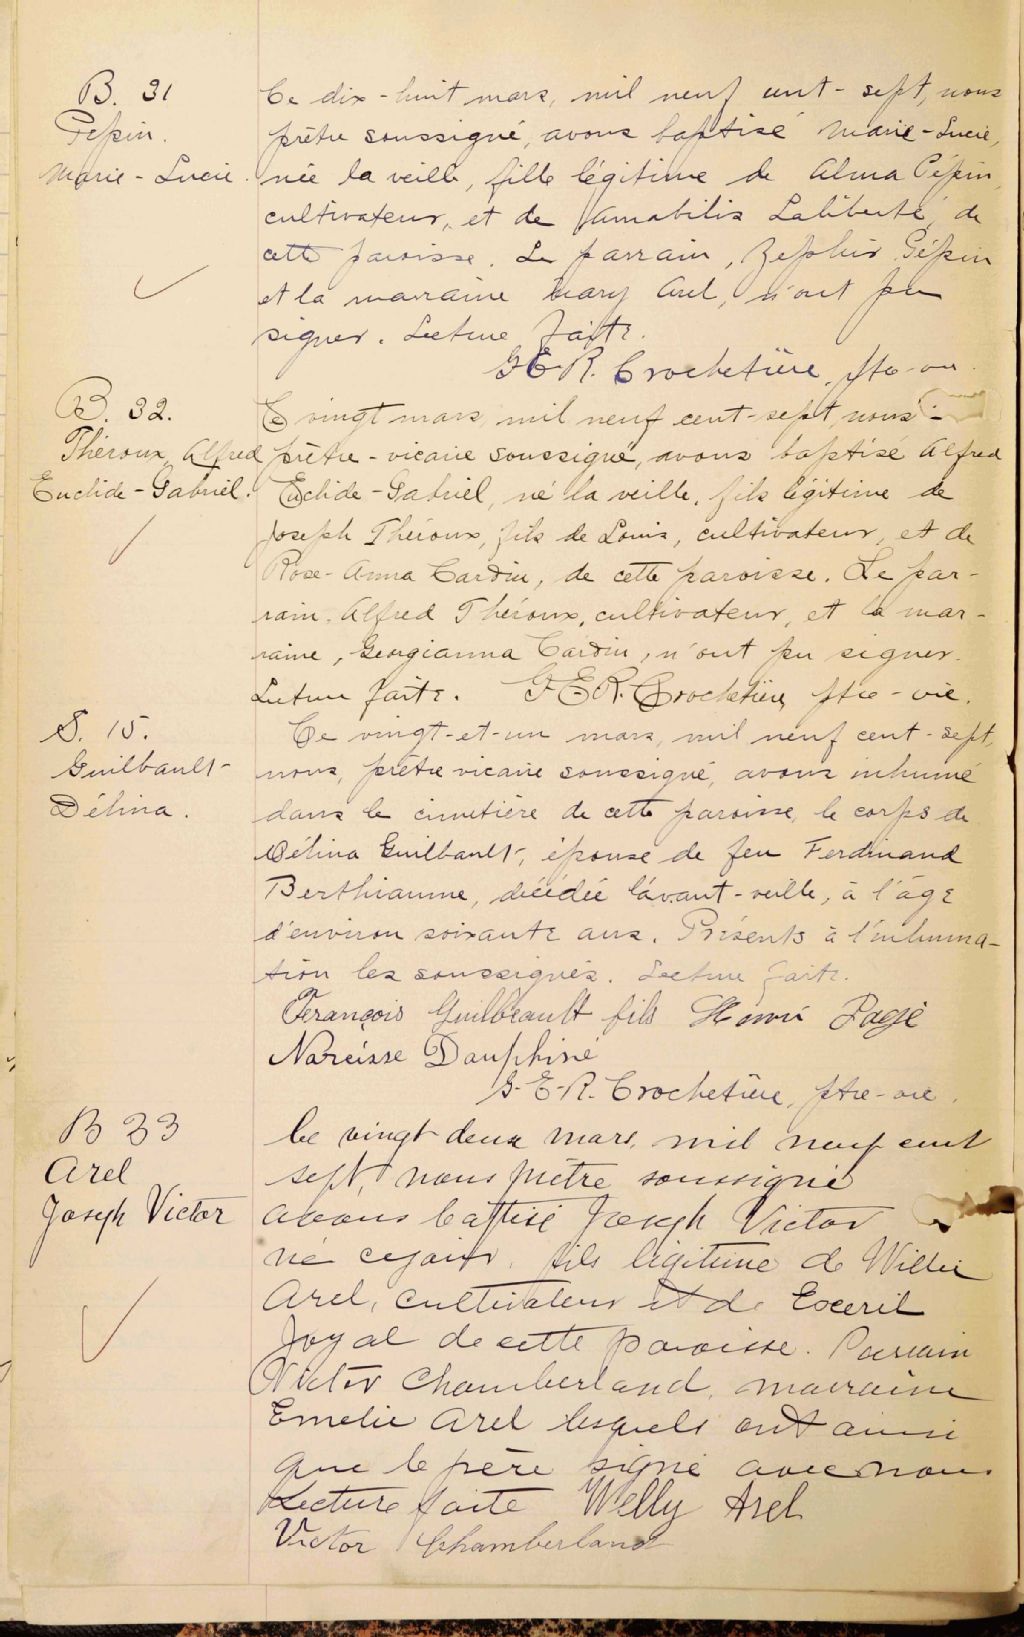 B. 31
Pépin.
Marie-Lucie.
Ce dix-huit mars, mil neuf cent-sept, nous
prêtre soussigné, avons baptisé Marie-Lucie,
née la veille, fille légitime de Alma Pépin,
cultivateur, et de Amabilis Laliberté, de
cette paroisse. Le parrain, Zéphir Pépin
et la marraine Mary Arel, n'ont pu
signer. Lecture faite.
G.E.R. Crochetière, ptre-vic.
B. 32.
Théroux, Alfred
Euclide-Gabriel.
Ce vingt mars, mil neuf cent-sept, nous
prêtre-vicaire soussigné, avons baptisé Alfred
Euclide-Gabriel, né la veille, fils légitime de
Joseph Théroux, fils de Louis, cultivateur, et de
Rose-Anna Cardin, de cette paroisse. Le par-
rain, Alfred Théroux, cultivateur, et la mar-
raine, Georgianna Cardin, n'ont pu signer.
Lecture faite. G.E.R. Crochetière, ptre-vic.
S. 15.
Guilbault
Délina.
Ce vingt-et-un mars, mil neuf cent-sept,
nous, prêtre vicaire soussigné, avons inhumé
dans le cimetière de cette paroisse, le corps de
Délina Guilbault, épouse de feu Ferdinand
Berthiaume, décédée l'avant-veille, à l'âge
d'environ soixante ans. Présents à l'inhuma-
tion les soussignés. Lecture faite.
François Guilbeault fils Henri Pagé
Narcisse Dauphiné
G.E.R. Crochetière, ptre-vic.
B 33
Arel
Joseph Victor
Le vingt deux mars, mil neuf cent
sept, nous prêtre soussigné
avons baptisé Joseph Victor
né ce jour, fils légitime de Willie
Arel, cultivateur et de Exeril
Joyal de cette paroisse. Parrain
Victor Chamberland, marraine
Emelie Arel lesquels ont ainsi
que le père signé avec nous
Lecture faite Welly Arel
Victor Chamberland